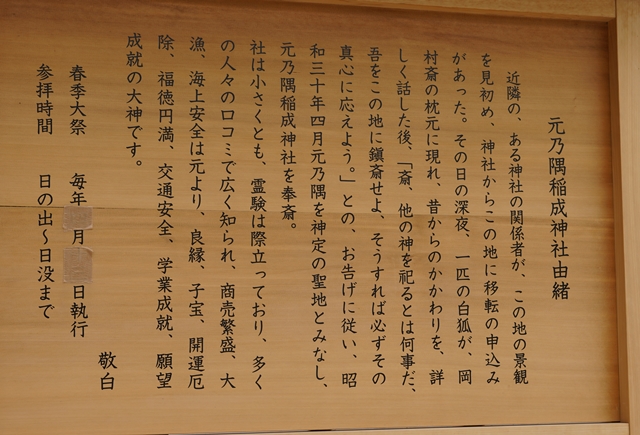 元乃隅稲成神社由緒
近隣の、ある神社の関係者が、この地の景観
を見初め、神社からこの地に移転の申込み
があった。その日の深夜、一匹の白狐が、岡
村斎の枕元に現れ、昔からのかかわりを、詳
しく話した後、「斎、他の神を祀るとは何事だ、
吾をこの地に鎭斎せよ、そうすれば必ずその
真心に応えよう。」との、お告げに従い、昭
和三十年四月元乃隅を神定の聖地とみなし、
元乃隅稲成神社を奉斎。
社は小さくとも、霊験は際立っており、多く
の人々の口コミで広く知られ、商売繁盛、大
漁、海上安全は元より、良縁、子宝、開運厄
除、福徳円満、交通安全、学業成就、願望
成就の大神です。
敬白
春季大祭 毎年 月 日執行
参拝時間 日の出〜日没まで